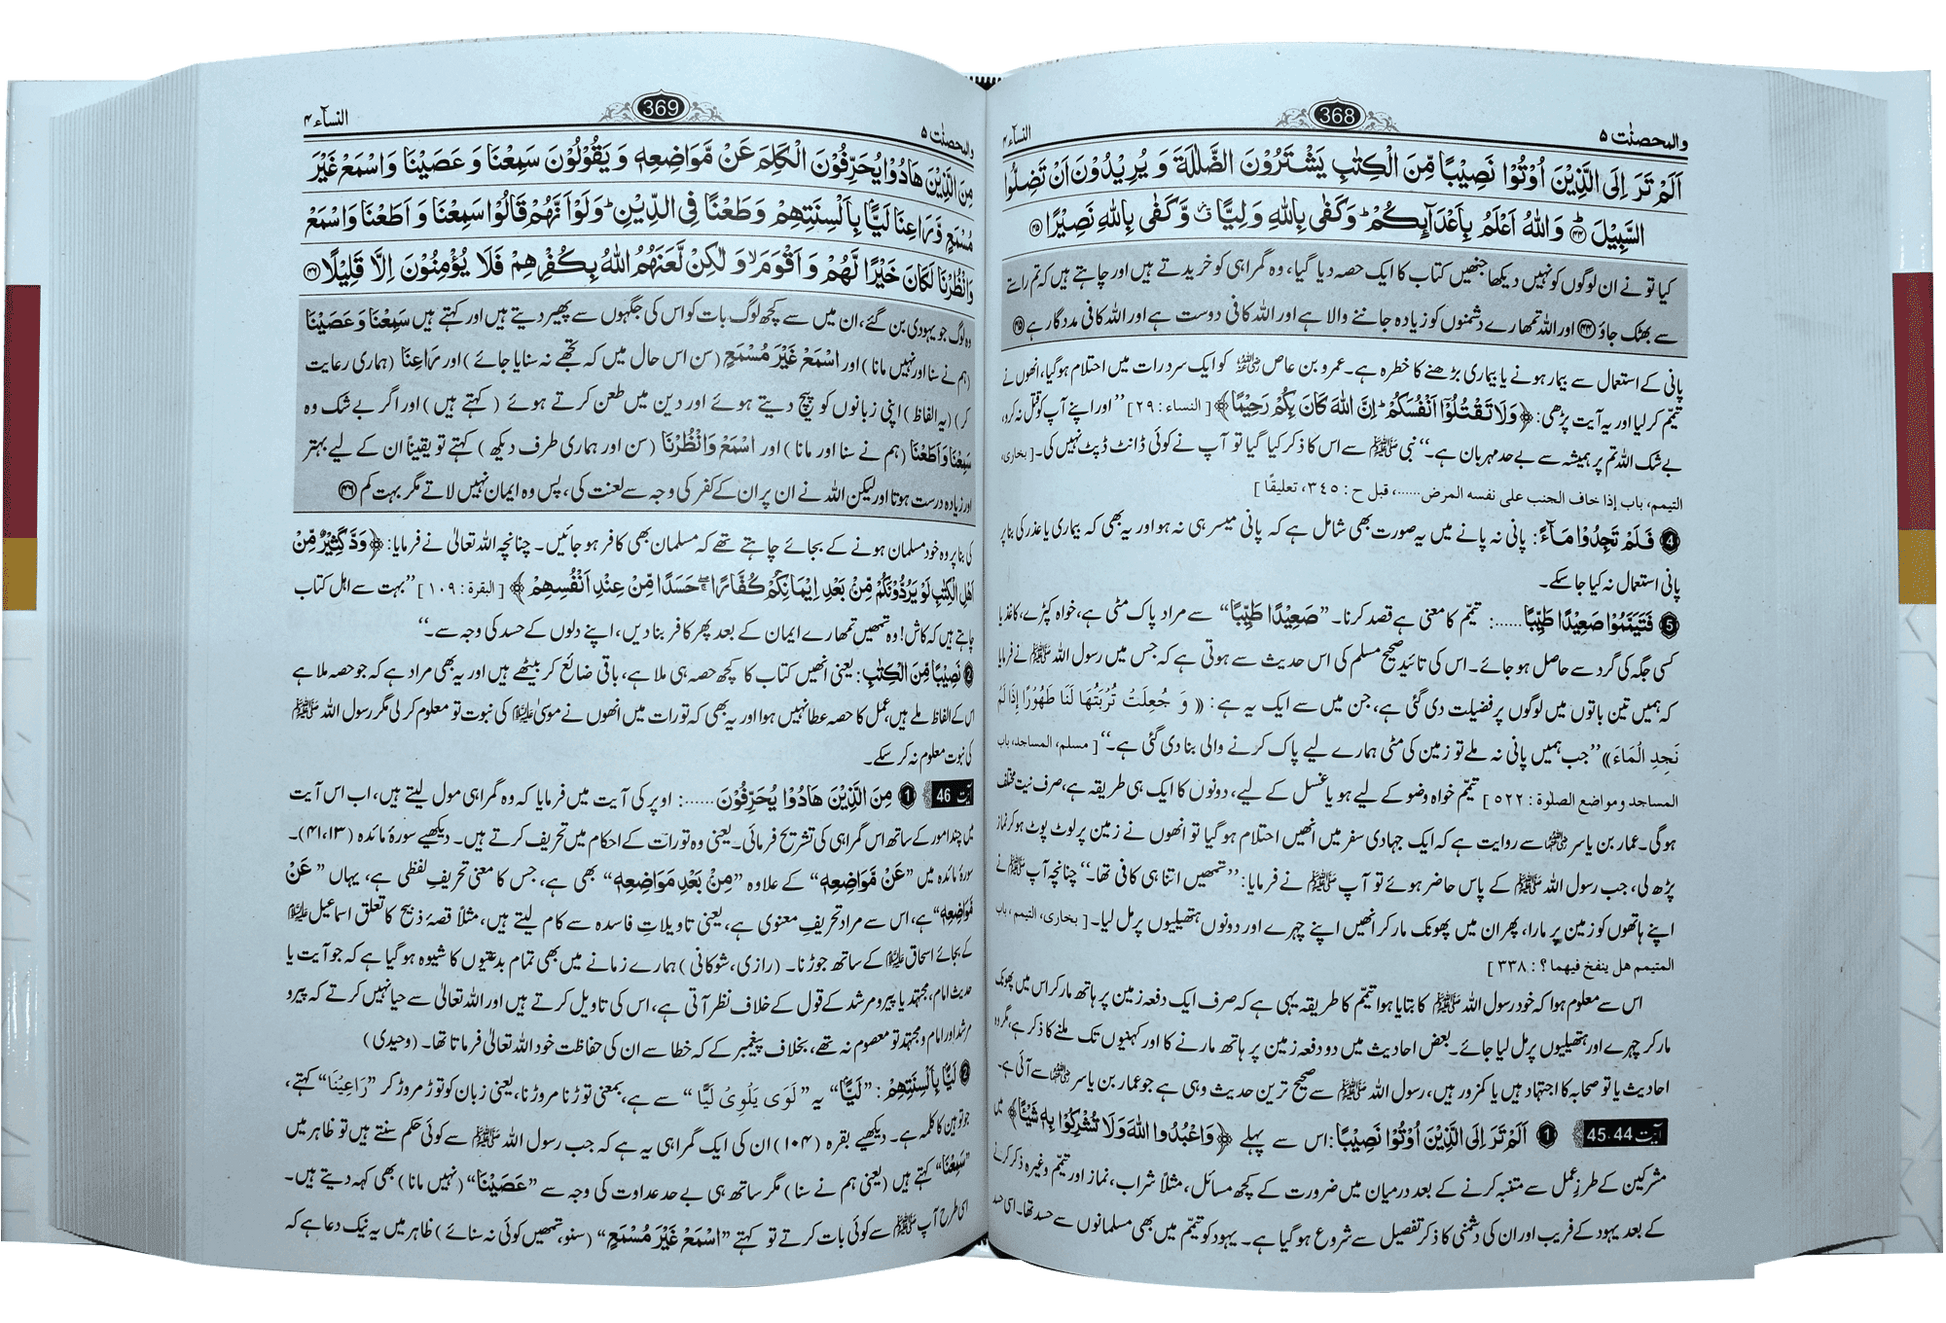 والمحصنٰت ۵
368
النسآء ۴
اَلَمْ تَرَ اِلَى الَّذِيْنَ اُوْتُوْا نَصِيْبًا مِّنَ الْكِتٰبِ يَشْتَرُوْنَ الضَّلٰلَةَ وَ يُرِيْدُوْنَ اَنْ تَضِلُّوا
السَّبِيْلَ ﴿۴۴﴾ وَاللّٰهُ اَعْلَمُ بِاَعْدَآىِٕكُمْ ؕ وَ كَفٰى بِاللّٰهِ وَلِيًّا ۙ٘ وَّ كَفٰى بِاللّٰهِ نَصِيْرًا ﴿۴۵﴾
کیا تو نے ان لوگوں کو نہیں دیکھا جنھیں کتاب کا ایک حصہ دیا گیا، وہ گمراہی کو خریدتے ہیں اور چاہتے ہیں کہ تم راستے
سے بھٹک جاؤ ﴿۴۴﴾ اور اللہ تمھارے دشمنوں کو زیادہ جاننے والا ہے اور اللہ کافی دوست ہے اور اللہ کافی مددگار ہے ﴿۴۵﴾
پانی کے استعمال سے بیمار ہونے یا بیماری بڑھنے کا خطرہ ہے۔ عمرو بن عاص رضی اللہ عنہ کو ایک سرد رات میں احتلام ہو گیا، انھوں نے
تیمّم کر لیا اور یہ آیت پڑھی: ﴿وَلَا تَقْتُلُوْۤا اَنْفُسَكُمْ ؕ اِنَّ اللّٰهَ كَانَ بِكُمْ رَحِيْمًا﴾ [ النساء : ۲۹ ] ’’اور اپنے آپ کو قتل نہ کرو،
بے شک اللہ تم پر ہمیشہ سے بے حد مہربان ہے۔‘‘ نبی ﷺ سے اس کا ذکر کیا گیا تو آپ نے کوئی ڈانٹ ڈپٹ نہیں کی۔ [ بخاری،
التيمم، باب إذا خاف الجنب على نفسه المرض......، قبل ح : ٣٤٥، تعليقًا ]
4 فَلَمْ تَجِدُوْا مَآءً : پانی نہ پانے میں یہ صورت بھی شامل ہے کہ پانی میسر ہی نہ ہو اور یہ بھی کہ بیماری یا عذر کی بنا پر
پانی استعمال نہ کیا جا سکے۔
5 فَتَيَمَّمُوْا صَعِيْدًا طَيِّبًا......: تیمّم کا معنی ہے قصد کرنا۔ ’’صَعِيْدًا طَيِّبًا‘‘ سے مراد پاک مٹی ہے، خواہ کپڑے، کاغذ یا
کسی جگہ کی گرد سے حاصل ہو جائے۔ اس کی تائید صحیح مسلم کی اس حدیث سے ہوتی ہے کہ جس میں رسول اللہ ﷺ نے فرمایا
کہ ہمیں تین باتوں میں لوگوں پر فضیلت دی گئی ہے، جن میں سے ایک یہ ہے: (( وَ جُعِلَتْ تُرْبَتُهَا لَنَا طَهُوْرًا إِذَا لَمْ
نَجِدِ الْمَاءَ)) ’’جب ہمیں پانی نہ ملے تو زمین کی مٹی ہمارے لیے پاک کرنے والی بنا دی گئی ہے۔‘‘ [ مسلم، المساجد، باب
المساجد ومواضع الصلوٰة : ٥٢٢ ] تیمّم خواہ وضو کے لیے ہو یا غسل کے لیے، دونوں کا ایک ہی طریقہ ہے، صرف نیت مختلف
ہوگی۔ عمار بن یاسر رضی اللہ عنہما سے روایت ہے کہ ایک جہادی سفر میں انھیں احتلام ہو گیا تو انھوں نے زمین پر لوٹ پوٹ ہو کر نماز
پڑھ لی، جب رسول اللہ ﷺ کے پاس حاضر ہوئے تو آپ ﷺ نے فرمایا: ’’تمھیں اتنا ہی کافی تھا۔‘‘ چنانچہ آپ ﷺ نے
اپنے ہاتھوں کو زمین پر مارا، پھر ان میں پھونک مار کر انھیں اپنے چہرے اور دونوں ہتھیلیوں پر مل لیا۔ [ بخاری، التيمم، باب
المتيمم هل ينفخ فيهما؟ : ٣٣٨ ]
اس سے معلوم ہوا کہ خود رسول اللہ ﷺ کا بتایا ہوا تیمّم کا طریقہ یہی ہے کہ صرف ایک دفعہ زمین پر ہاتھ مار کر اس میں پھونک
مار کر چہرے اور ہتھیلیوں پر مل لیا جائے۔ بعض احادیث میں دو دفعہ زمین پر ہاتھ مارنے کا اور کہنیوں تک ملنے کا ذکر ہے، مگر وہ
احادیث یا تو صحابہ کا اجتہاد ہیں یا کمزور ہیں، رسول اللہ ﷺ سے صحیح ترین حدیث وہی ہے جو عمار بن یاسر رضی اللہ عنہما سے آئی ہے۔
آیت 44-45 1 اَلَمْ تَرَ اِلَى الَّذِيْنَ اُوْتُوْا نَصِيْبًا: اس سے پہلے ﴿وَاعْبُدُوا اللّٰهَ وَلَا تُشْرِكُوْا بِهٖ شَيْـًٔا﴾ میں
مشرکین کے طرز عمل سے متنبہ کرنے کے بعد درمیان میں ضرورت کے کچھ مسائل، مثلاً شراب، نماز اور تیمّم وغیرہ ذکر کرنے
کے بعد یہود کے فریب اور ان کی دشمنی کا ذکر تفصیل سے شروع ہو گیا ہے۔ یہود کو تیمّم میں بھی مسلمانوں سے حسد تھا۔ اسی حسد
والمحصنٰت ۵
369
النسآء ۴
مِنَ الَّذِيْنَ هَادُوْا يُحَرِّفُوْنَ الْكَلِمَ عَنْ مَّوَاضِعِهٖ وَ يَقُوْلُوْنَ سَمِعْنَا وَ عَصَيْنَا وَ اسْمَعْ غَيْرَ
مُسْمَعٍ وَّ رَاعِنَا لَيًّۢا بِاَلْسِنَتِهِمْ وَ طَعْنًا فِى الدِّيْنِ ؕ وَ لَوْ اَنَّهُمْ قَالُوْا سَمِعْنَا وَ اَطَعْنَا وَ اسْمَعْ
وَ انْظُرْنَا لَكَانَ خَيْرًا لَّهُمْ وَ اَقْوَمَ ۙ وَ لٰكِنْ لَّعَنَهُمُ اللّٰهُ بِكُفْرِهِمْ فَلَا يُؤْمِنُوْنَ اِلَّا قَلِيْلًا ﴿۴۶﴾
وہ لوگ جو یہودی بن گئے، ان میں سے کچھ لوگ بات کو اس کی جگہوں سے پھیر دیتے ہیں اور کہتے ہیں سَمِعْنَا وَ عَصَيْنَا
(ہم نے سنا اور نہیں مانا) اور اسْمَعْ غَيْرَ مُسْمَعٍ (سن اس حال میں کہ تجھے نہ سنایا جائے) اور رَاعِنَا (ہماری رعایت
کر) (یہ الفاظ) اپنی زبانوں کو پیچ دیتے ہوئے اور دین میں طعن کرتے ہوئے (کہتے ہیں) اور اگر بے شک وہ
سَمِعْنَا وَ اَطَعْنَا (ہم نے سنا اور مانا) اور اسْمَعْ وَانْظُرْنَا (سن اور ہماری طرف دیکھ) کہتے تو یقیناً ان کے لیے بہتر
اور زیادہ درست ہوتا اور لیکن اللہ نے ان پر ان کے کفر کی وجہ سے لعنت کی، پس وہ ایمان نہیں لاتے مگر بہت کم ﴿۴۶﴾
کی بنا پر وہ خود مسلمان ہونے کے بجائے چاہتے تھے کہ مسلمان بھی کافر ہو جائیں۔ چنانچہ اللہ تعالیٰ نے فرمایا: ﴿وَدَّ كَثِيْرٌ مِّنْ
اَهْلِ الْكِتٰبِ لَوْ يَرُدُّوْنَكُمْ مِّنْۢ بَعْدِ اِيْمَانِكُمْ كُفَّارًا ۖۚ حَسَدًا مِّنْ عِنْدِ اَنْفُسِهِمْ﴾ [ البقرة : ۱۰۹ ] ’’بہت سے اہل کتاب
چاہتے ہیں کہ کاش! وہ تمھیں تمھارے ایمان کے بعد پھر کافر بنا دیں، اپنے دلوں کے حسد کی وجہ سے۔‘‘
2 نَصِيْبًا مِّنَ الْكِتٰبِ: یعنی انھیں کتاب کا کچھ حصہ ہی ملا ہے، باقی ضائع کر بیٹھے ہیں اور یہ بھی مراد ہے کہ جو حصہ ملا ہے
اس کے الفاظ ملے ہیں، عمل کا حصہ عطا نہیں ہوا اور یہ بھی کہ تورات میں انھوں نے موسیٰ علیہ السلام کی نبوت تو معلوم کر لی مگر رسول اللہ ﷺ
کی نبوت معلوم نہ کر سکے۔
آیت 46 1 مِنَ الَّذِيْنَ هَادُوْا يُحَرِّفُوْنَ......: اوپر کی آیت میں فرمایا کہ وہ گمراہی مول لیتے ہیں، اب اس آیت
میں چند امور کے ساتھ اس گمراہی کی تشریح فرمائی۔ یعنی وہ تورات کے احکام میں تحریف کرتے ہیں۔ دیکھیے سورۂ مائدہ (۴۱،۱۳)۔
سورۂ مائدہ میں ’’عَنْ مَّوَاضِعِهٖ‘‘ کے علاوہ ’’مِنْۢ بَعْدِ مَوَاضِعِهٖ‘‘ بھی ہے، جس کا معنی تحریفِ لفظی ہے، یہاں ’’عَنْ
مَّوَاضِعِهٖ‘‘ ہے، اس سے مراد تحریفِ معنوی ہے، یعنی تاویلاتِ فاسدہ سے کام لیتے ہیں، مثلاً قصۂ ذبیح کا تعلق اسماعیل علیہ السلام
کے بجائے اسحاق علیہ السلام کے ساتھ جوڑنا۔ (رازی، شوکانی) ہمارے زمانے میں بھی تمام بدعتیوں کا شیوہ ہو گیا ہے کہ جو آیت یا
حدیث امام، مجتہد یا پیر و مرشد کے قول کے خلاف نظر آتی ہے، اس کی تاویل کرتے ہیں اور اللہ تعالیٰ سے حیا نہیں کرتے کہ پیر و
مرشد اور امام و مجتہد تو معصوم نہ تھے، بخلاف پیغمبر کے کہ خطا سے ان کی حفاظت خود اللہ تعالیٰ فرماتا تھا۔ (وحیدی)
2 لَيًّۢا بِاَلْسِنَتِهِمْ: ’’لَيًّا‘‘ یہ ’’لَوَى يَلْوِيْ لَيًّا‘‘ سے ہے، بمعنی توڑنا مروڑنا، یعنی زبان کو توڑ مروڑ کر ’’رَاعِيْنَا‘‘ کہتے،
جو توہین کا کلمہ ہے۔ دیکھیے بقرہ (۱۰۴) ان کی ایک گمراہی یہ ہے کہ جب رسول اللہ ﷺ سے کوئی حکم سنتے ہیں تو ظاہر میں
’’سَمِعْنَا‘‘ کہتے ہیں (یعنی ہم نے سنا) مگر ساتھ ہی بے حد عداوت کی وجہ سے ’’عَصَيْنَا‘‘ (نہیں مانا) بھی کہہ دیتے ہیں۔
اسی طرح آپ ﷺ سے کوئی بات کرتے تو کہتے ’’اسْمَعْ غَيْرَ مُسْمَعٍ‘‘ (سنو، تمھیں کوئی نہ سنائے) ظاہر میں یہ نیک دعا ہے کہ